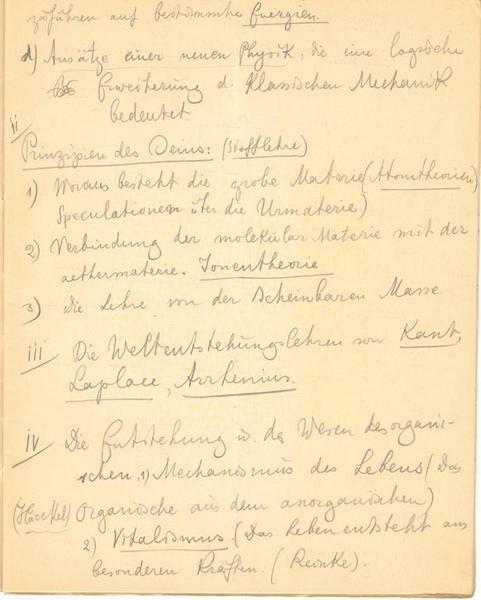 zuführen auf bestimmte Energien.
d) Ansätze einer neuen Physik, die eine logische
Erweiterung d. Klassischen Mechanik
bedeutet.
ii
Prinzipien des Seins: (Stofflehre)
1) Woraus besteht die grobe Materie (Atomtheorien)
Speculationen über die Urmaterie)
2) Verbindung der molekular Materie mit der
aethermaterie. Ionentheorie
3) Die Lehre von der scheinbaren Masse
iii Die Weltentstehungslehren von Kant,
Laplace, Arrhenius.
iv Die Entstehung u. das Wesen des organi-
schen. 1) Mechanismus des Lebens (Das
(Häckel) Organische aus dem anorganischen)
2) Vitalismus. (Das Leben entsteht aus
besonderen Kräften. (Reinke).